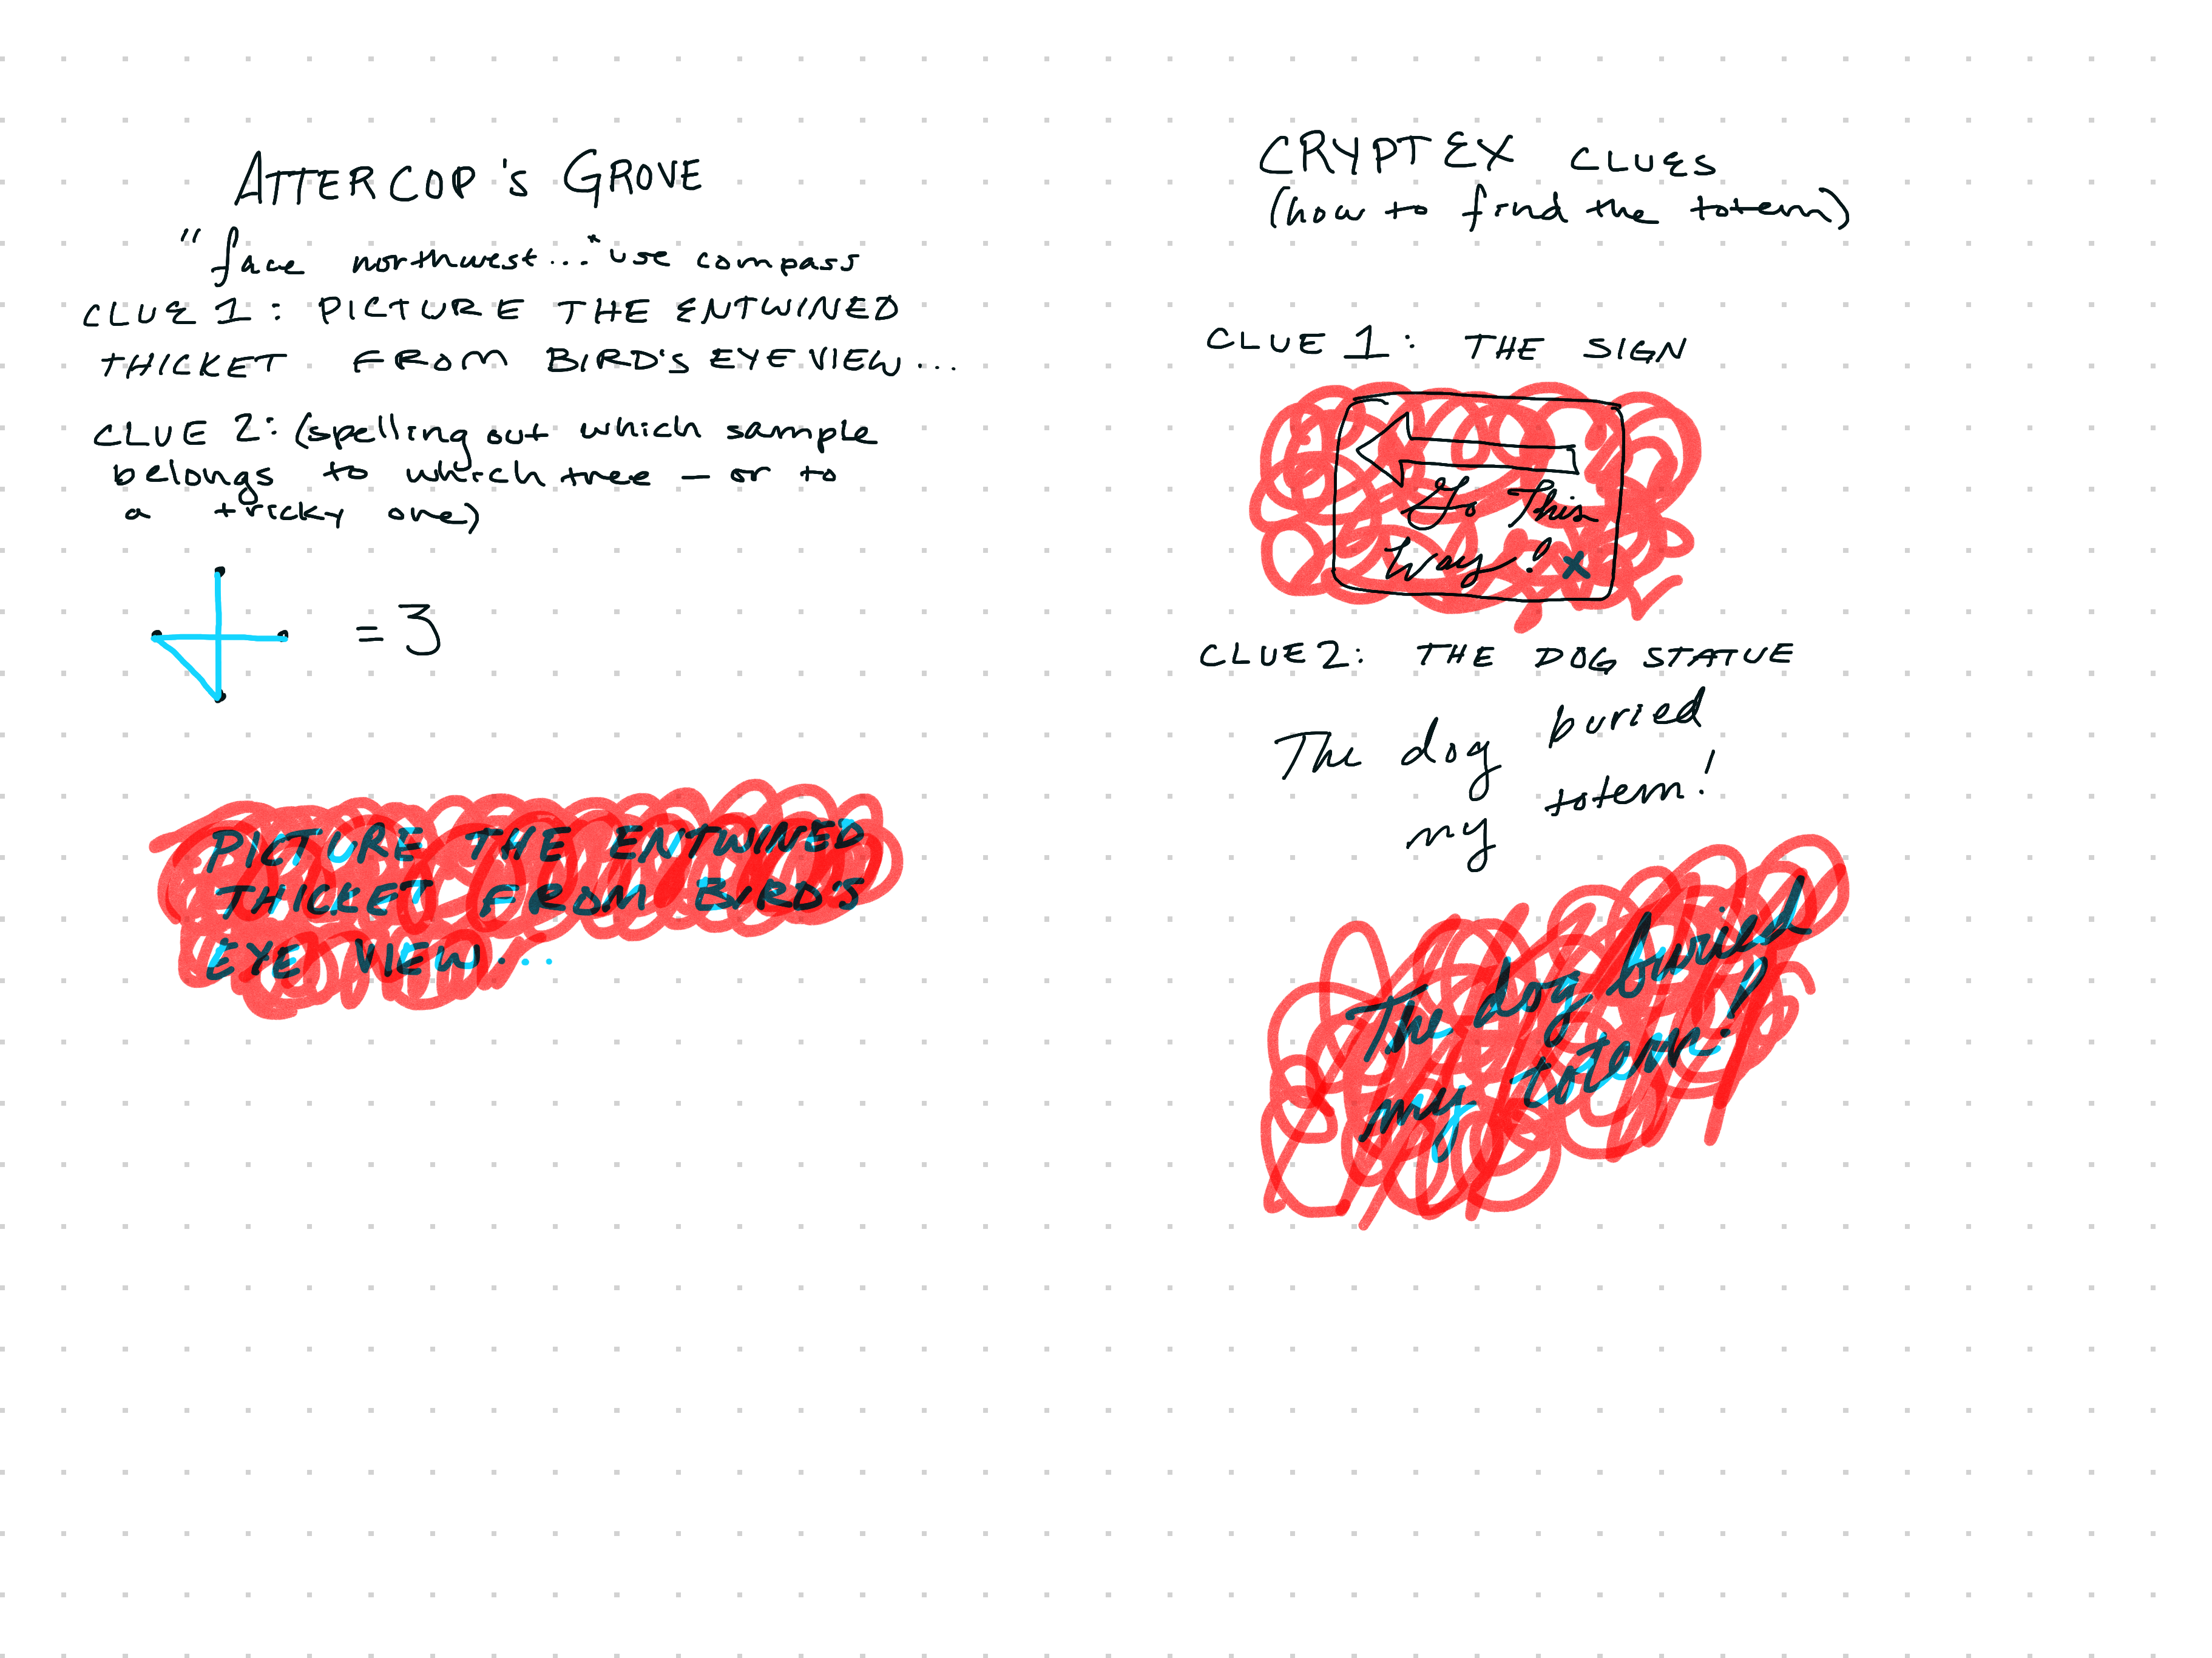 ATTERCOP'S GROVE
"face northwest..." use compass
CLUE 1: PICTURE THE ENTWINED
THICKET FROM BIRD'S EYE VIEW...
CLUE 2: (spelling out which sample
belongs to which tree – or to
a tricky one)
= 3
PICTURE THE ENTWINED
THICKET FROM BIRD'S
EYE VIEW...
CRYPTEX CLUES
(how to find the totem)
CLUE 1: THE SIGN
Go This
Way! X
CLUE 2: THE DOG STATUE
The dog buried
my totem!
The dog buried
my totem!